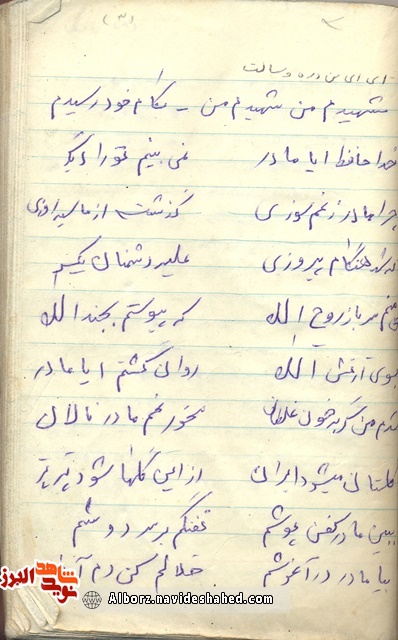 (۳)
شهیدم من شهیدم من - بکام خود رسیدم
خدا حافظ ایا مادر نمی بینم تو را دیگر
چرا مادر زغم سوزی گذشت از ما سیه روزی
که شد هنگام پیروزی علیه دشمنان یکسر
منم سرباز روح الله که پیوستم بجند الله
بسوی ارتش الله روان گشتم ایا مادر
شدم من گر بخون غلطان مخور غم مادر نالان
گلستان میشود ایران از این گلها شود پرپر
ببین مادر کفن پوشم تفنگم بر سر دوشم
بیا مادر در آغوشم حلالم کن دم آخر
شاهد البرز
نوید
Alborz.navideshahed.com